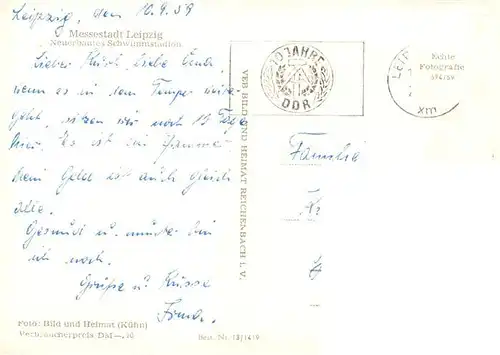 Leipzig, den 10.9.59
Messestadt Leipzig
Neuerbautes Schwimmstadion
Lieber Kurt, liebe
wenn es in dem Tempo weiter
geht, sitzen wir noch 13 Tage
hier. Es ist ein Jammer.
Mein Geld ist auch gleich
alle.
Gesund u. munter bin
ich noch.
Grüße u. Küsse
Foto: Bild und Heimat (Kühn)
Verbraucherpreis DM —,10
VEB BILD UND HEIMAT REICHENBACH I. V.
10 JAHRE
DDR
LEIP
xm
Echte
Fotografie
Familie
Best.-Nr. 13/1419